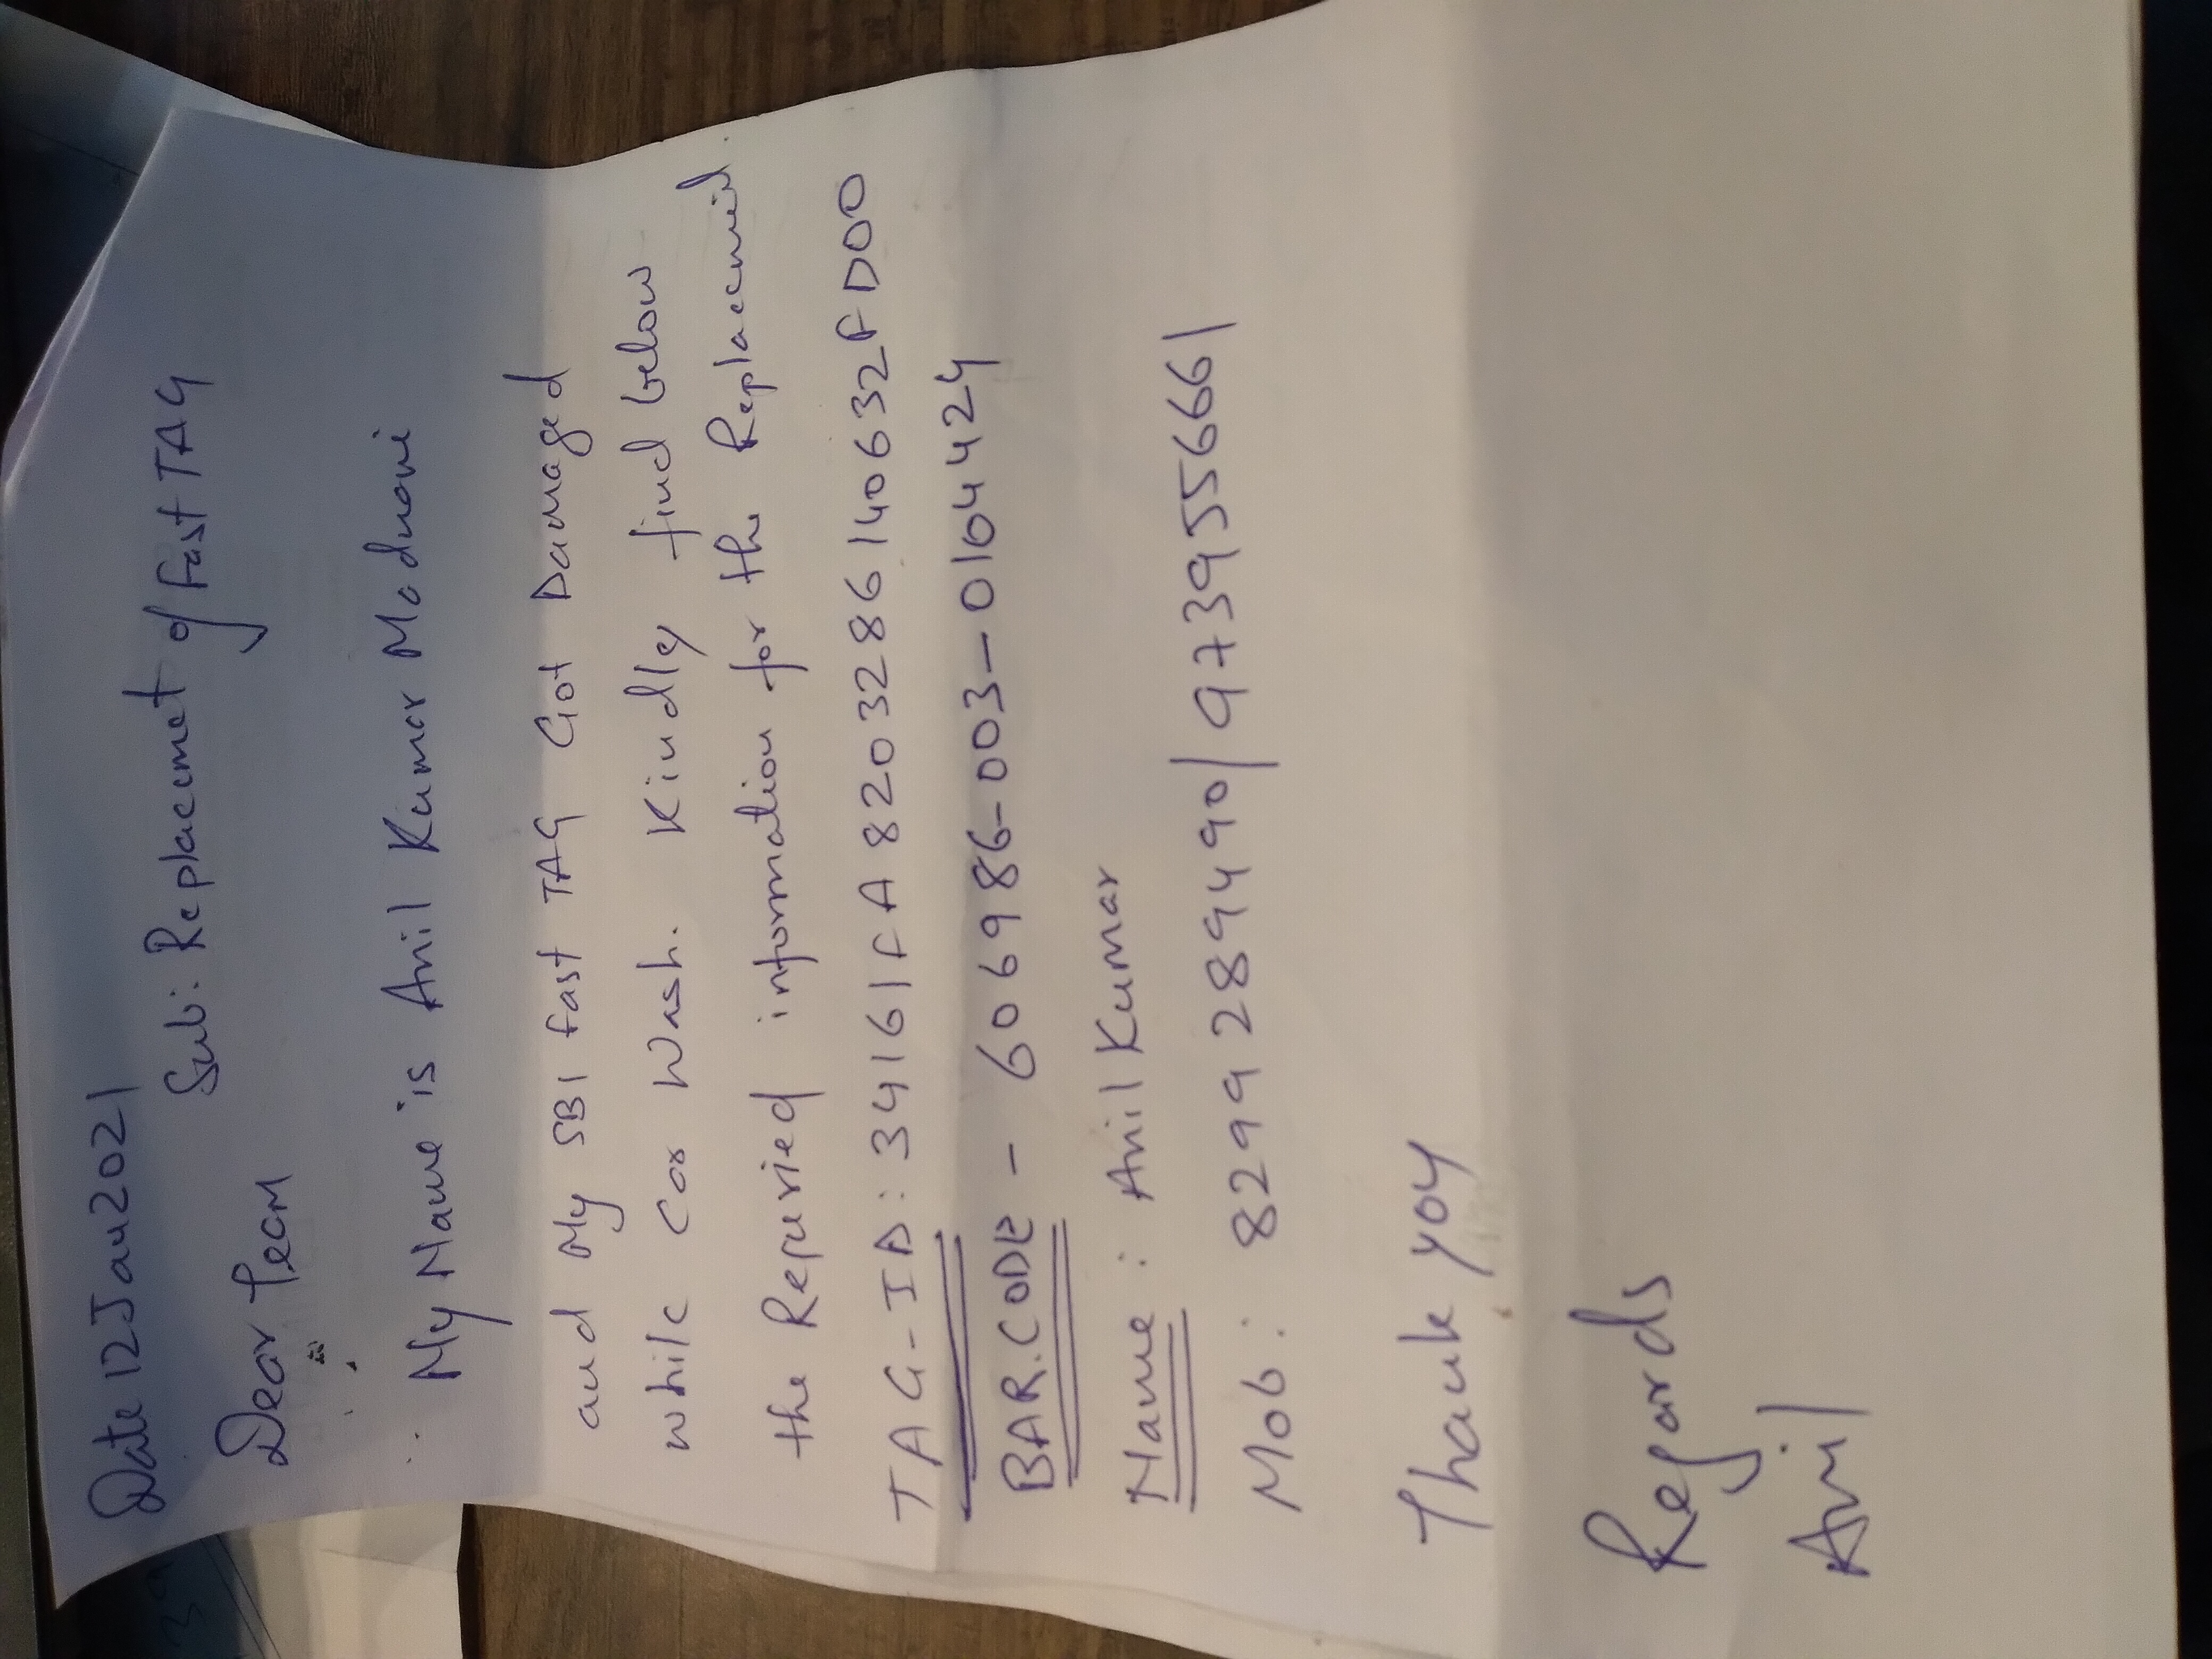 Date 12 Jan 2021
Sub: Replacemet of fast TAG
Dear Team
My Name is Anil Kumar Modnani
and My SBI fast TAG Got Damaged
while Car Wash. Kindly find below
the Requried information for the Replacement.
TAG-ID: 34161FA8203286140632FD00
BAR.CODE - 606986-003-0164424
Name : Anil Kumar
Mob: 8299289490/9739955661
Thank you
Regards
Anil